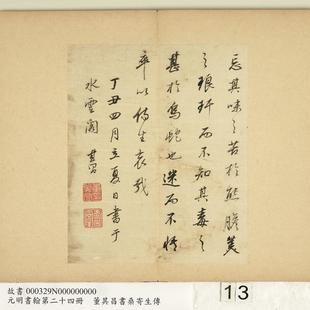 忘其味之苦於熊膽美
之琅玕而不知其毒之
甚於鳥蛇也迷而不悟
卒以傷生哀哉
丁丑四月立夏日書于
水雲閣 其昌
故書 000329N000000000
元明書翰第二十四冊 董其昌書桑寄生傳
13